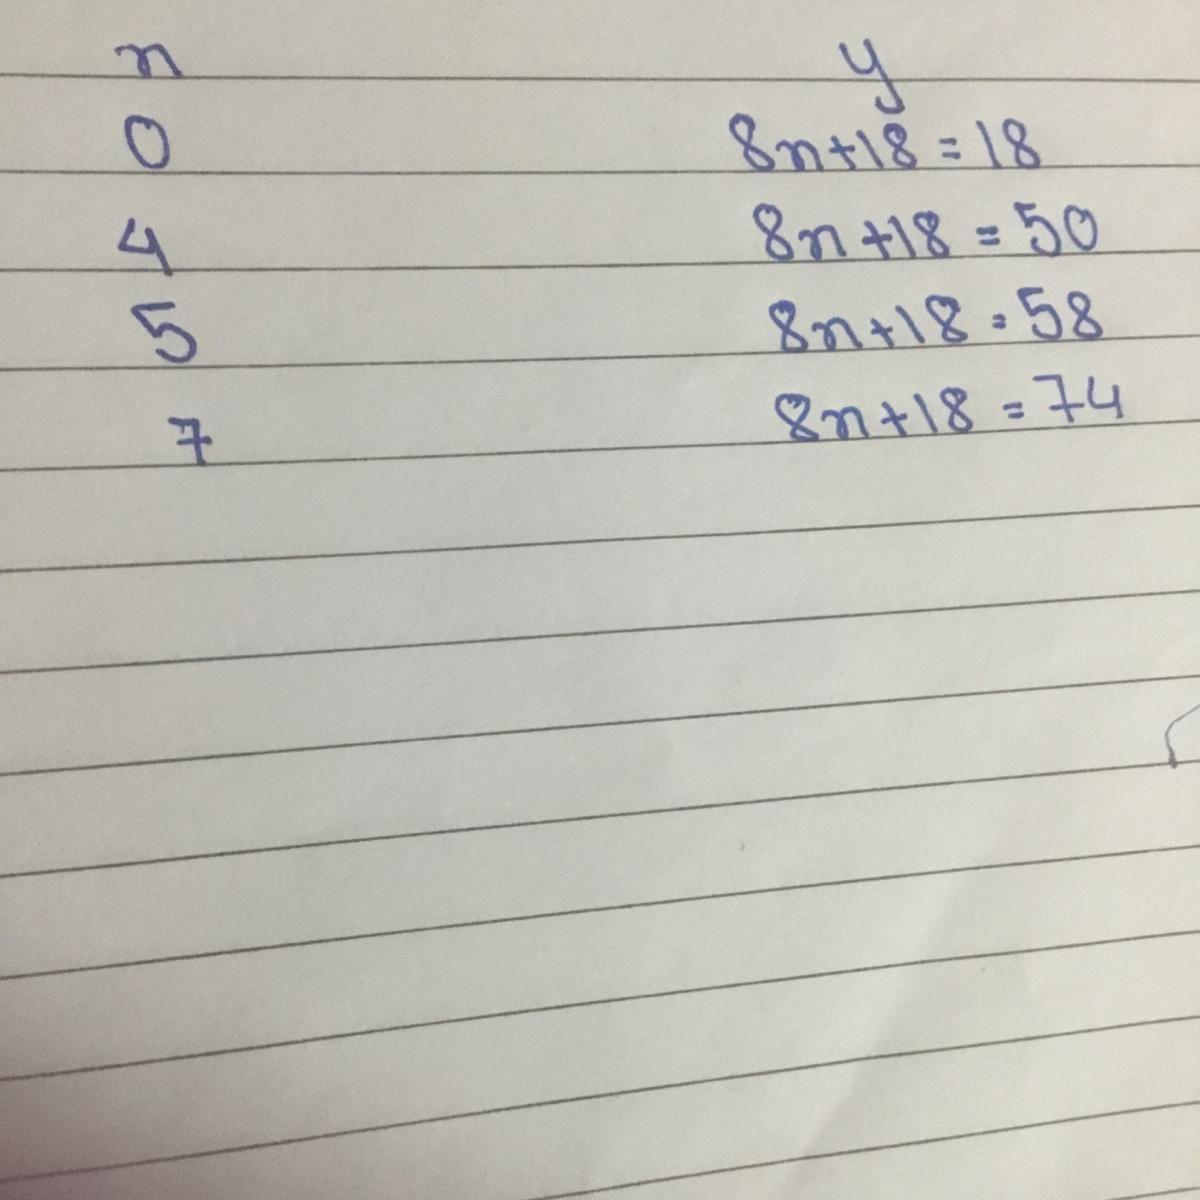 n y
0 8n+18=18
4 8n+18=50
5 8n+18=58
7 8n+18=74